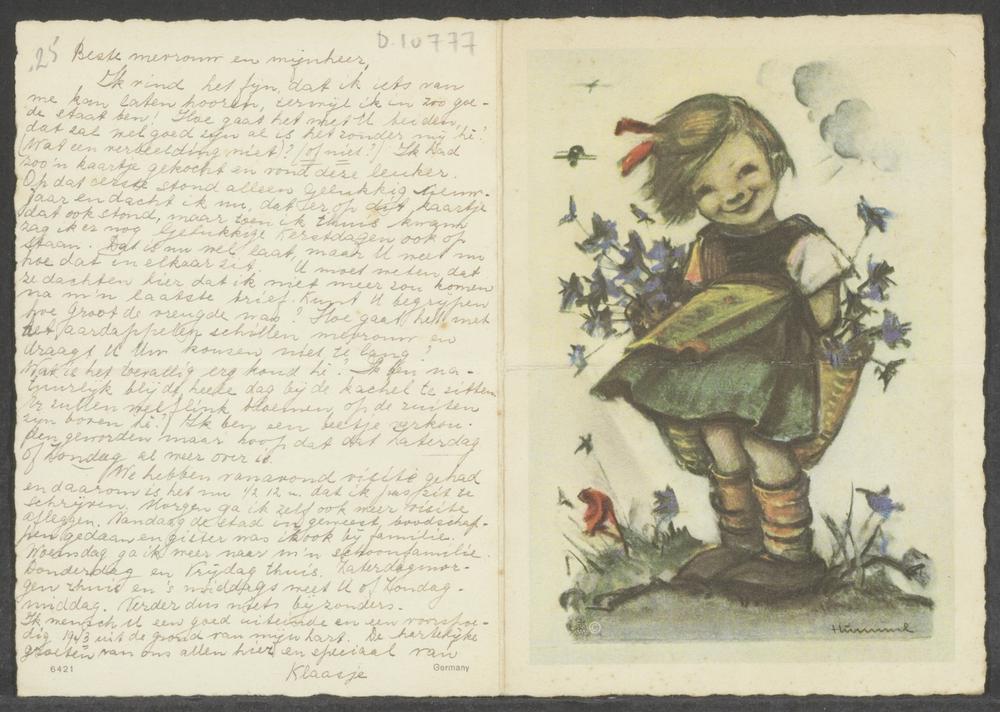 D.10777
25
Beste mevrouw en mijnheer,
Ik vind het fijn, dat ik iets van
me kan laten hooren, terwijl ik in zoo goe-
de staat ben! Hoe gaat het met U beiden,
dat zal wel goed zijn al is het zonder mij hè!
(Wat een verbeelding niet)? (of niet?) Ik had
zoo'n kaartje gekocht en vond deze leuker.
Op dat eerste stond alleen gelukkig nieuw-
jaar en dacht ik nu, dat er op dit kaartje
dat ook stond, maar toen ik thuis kwam
zag ik er nog Gelukkige Kerstdagen ook op
staan. Dat is nu wel laat, maar U weet nu
hoe dat in elkaar zit. U moet weten, dat
ze dachten hier dat ik niet meer zou komen
na m'n laatste brief. Kunt U begrijpen
hoe groot de vreugde was? Hoe gaat het met
het aardappelen schillen mevrouw en
draagt U Uw kousen niet te lang?
Wat is het toevallig erg koud hè! Ik ben na-
tuurlijk blij de heele dag bij de kachel te zitten
Er zullen wel flink bloemen op de ruiten
zijn boven hè! Ik ben een beetje verkou-
den geworden maar hoop dat dit Zaterdag
of Zondag al weer over is.
We hebben vanavond visite gehad
en daarom is het nu 1/2 12 u. dat ik pas zit te
schrijven. Morgen ga ik zelf ook weer visite
afleggen. Vandaag de stad in geweest, boodschap-
pen gedaan en gister was ik ook bij familie.
Woensdag ga ik weer naar m'n schoonfamilie.
Donderdag en Vrijdag thuis. Zaterdagmor-
gen thuis en 's middags weet U of Zondag-
middag. Verder dus niets bijzonders.
Ik wensch U een goed uiteinde en een voorspoe-
dig 1943 uit de grond van mijn hart. De hartelijke
groeten van ons allen hier en speciaal van
Klaasje
6421
Germany
©
Hummel